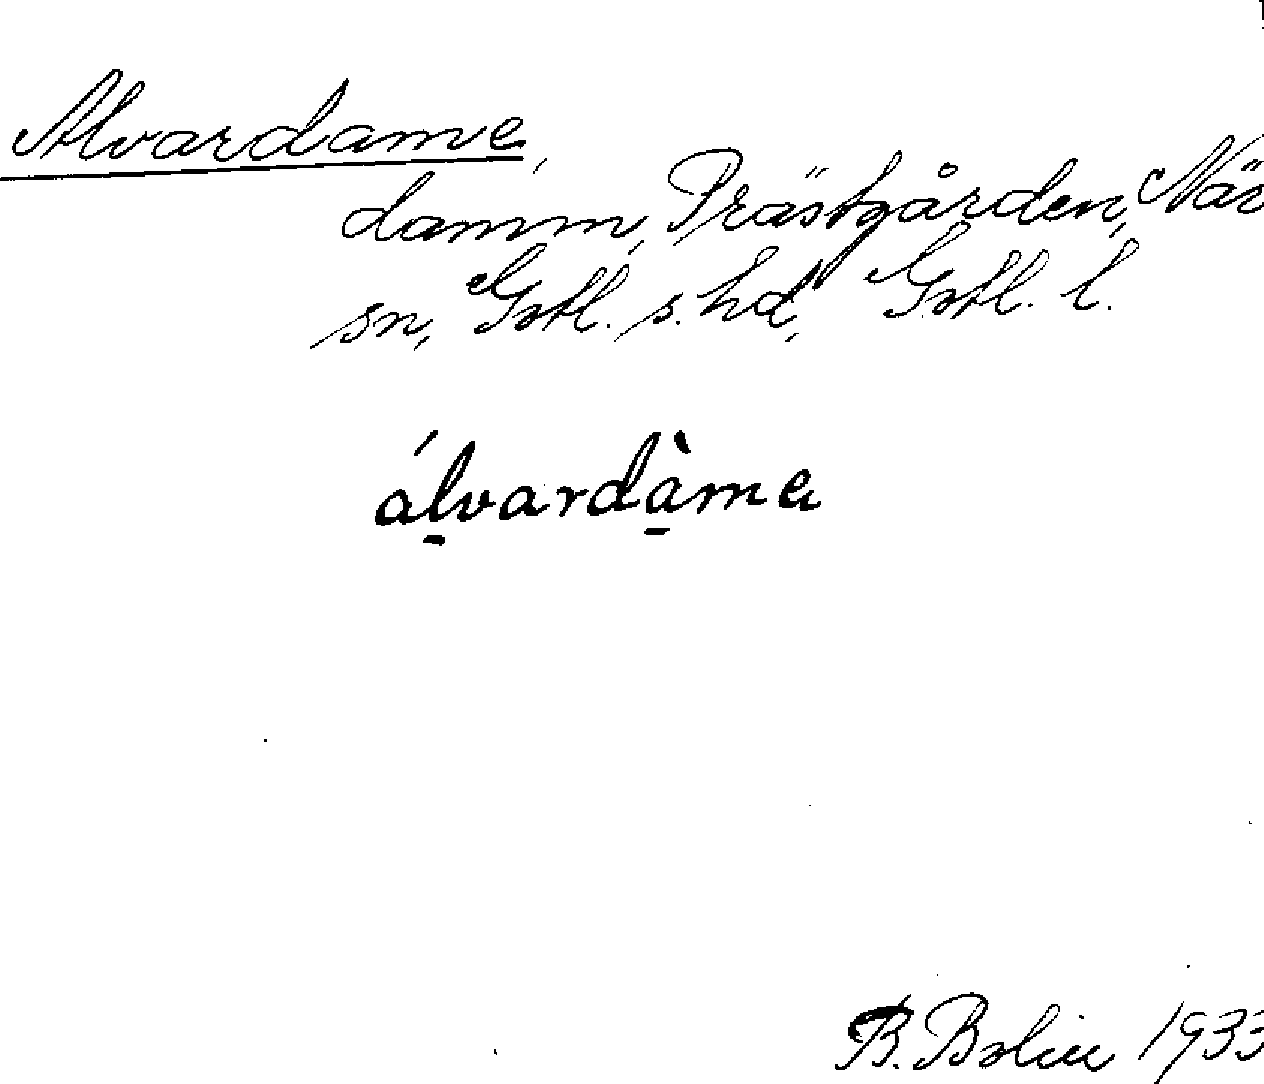 Alvardame,
damm, Prästgården, Näs
sn, Gotl. s. hd, Gotl. l.
álvardàme
B. Bolin 1933